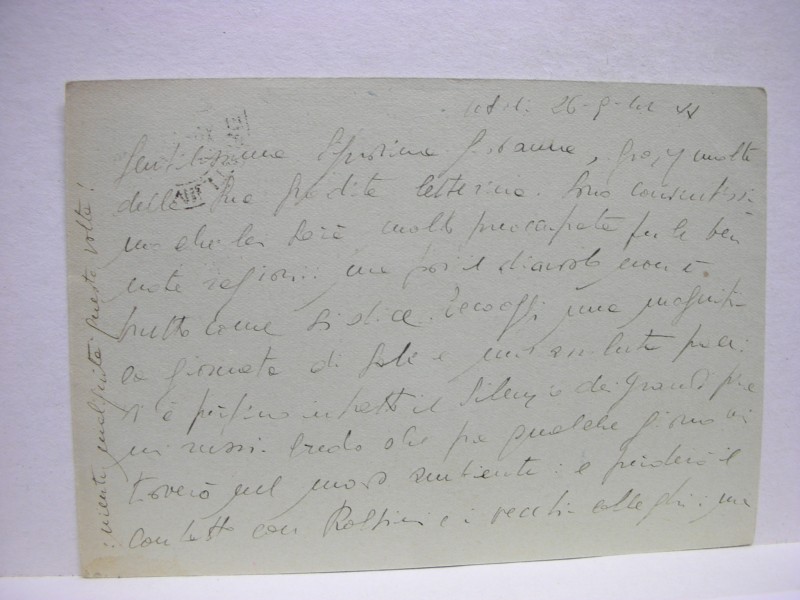 26-9-
Gentilissima Signorina Giovanna, molte
della Sua gradita letterina. Sono convintissi
mo che lei sarà molto preoccupata per le ben
note ragioni: ma poi il diavolo non è
brutto come si dice. Ecco oggi una magnifi-
ca giornata di sole e una assoluta pace:
si è perfino interrotto il silenzio dei grandi
Credo che fra qualche giorno mi
troverò nel nuovo ambiente: e perderò il
contatto con e i vecchi colleghi: ma
niente malinconie questa volta!